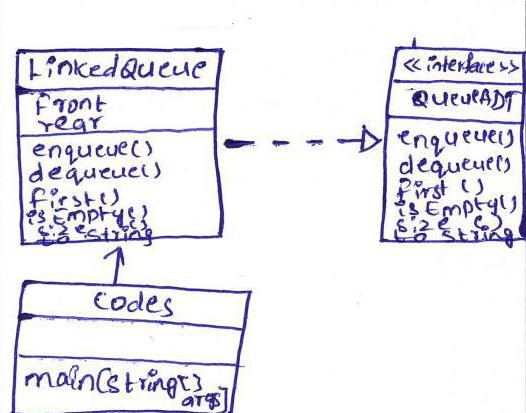 LinkedQueue
Front
rear
enqueue()
dequeue()
first()
isEmpty()
size()
to string
<<interface>>
QueueADT
enqueue()
dequeue()
first ()
isEmpty()
size()
to string
Codes
main(string[]
args]